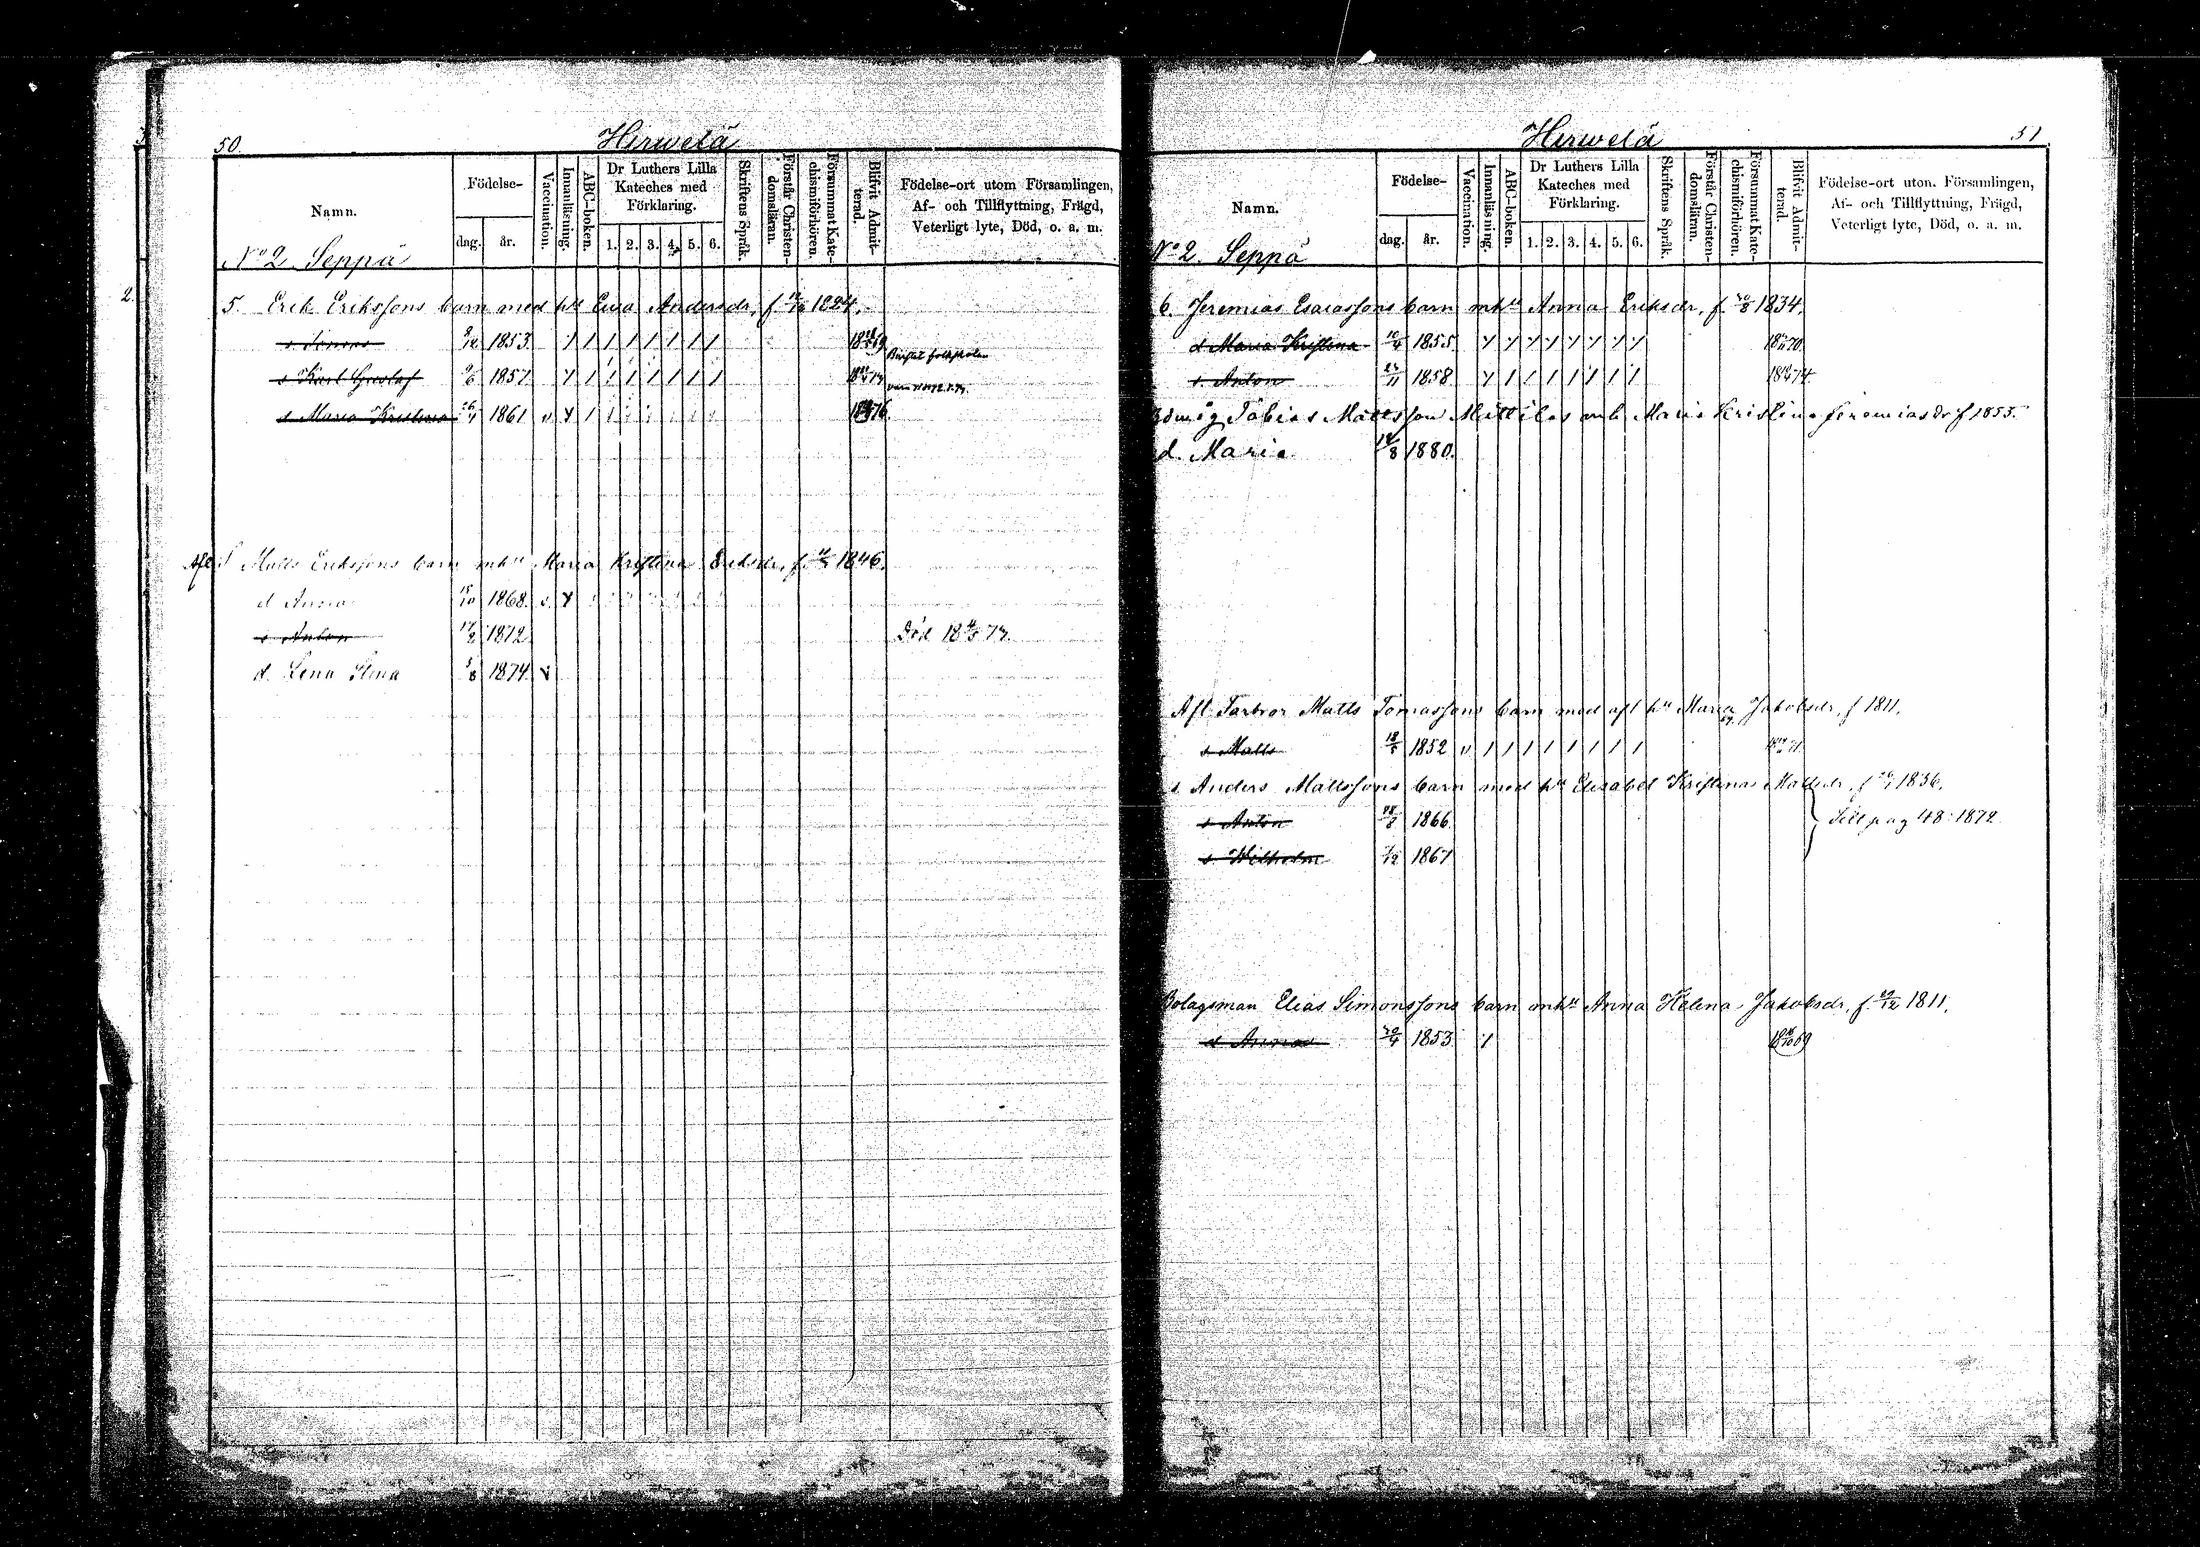 50.
Hirwelä
Namn.
Födelse-
dag.
år.
Vaccination.
Innanläsning.
ABC-boken.
Dr Luthers Lilla
Kateches med
Förklaring.
1. 2. 3. 4. 5. 6.
Skriftens Språk.
Förstår Christen-
domsläran.
Försummat Kate-
chismiförhören.
Blifvit Admit-
terad.
Födelse-ort utom Församlingen,
Af- och Tillflyttning, Frägd,
Veterligt lyte, Död, o. a. m.
2.
No 2. Seppä
5. Erik Erikssons barn med hu Eva Andersdr, f 1824.
1853 69
s Karl Gustaf 1857
d Maria Kristina 26/4 1861 v 76
Matts Erikssons barn m hu Maria Kristina Eriksdr, f. 1846.
d Anna 1868. v.
s Anton 17/2 1872 Död
d. Lena Stina 1874 v
51
Hirwelä
Namn.
Födelse-
dag.
år.
Vaccination.
Innanläsning.
ABC-boken.
Dr Luthers Lilla
Kateches med
Förklaring.
1. 2. 3. 4. 5. 6.
Skriftens Språk.
Förstår Christen-
domsläran.
Försummat Kate-
chismiförhören.
Blifvit Admit-
terad.
Födelse-ort utom Församlingen,
Af- och Tillflyttning, Frägd,
Veterligt lyte, Död, o. a. m.
No 2. Seppä
6. Jeremias Esaiassons barn m hu Anna Eriksdr, f. 1834.
d Maria Kristina 1855. 70
s. Anton 1858 74
Tobias Mattsson Mattilas m h Maria Kristina Jeremiasdr f 1855.
d. Maria 1880.
Afl Farbror Matts Tomassons barn med afl hu Maria Jakobsdr, f 1811.
s Matts 1852 v 71
s. Anders Mattssons barn med hu Elisabet Kristina Mattsdr, f 1836.
s Anton 1866 Till pag 48: 1872
s. Wilhelm 1867
Bolagsman Elias Simonssons barn m hu Anna Helena Jakobsdr, f. 1811.
d Anna 1853 69